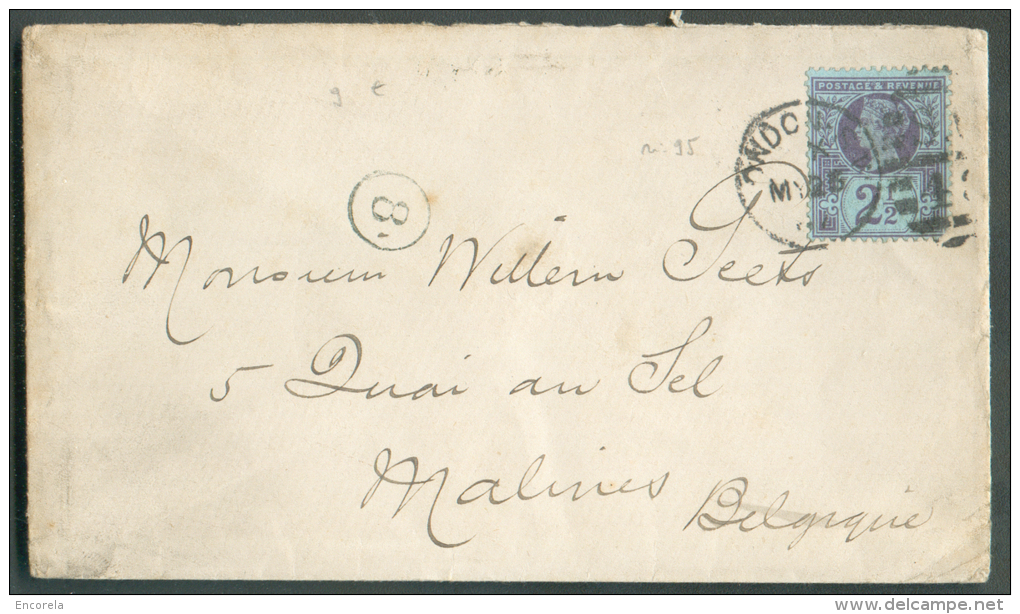 g €
POSTAGE & REVENUE
ONDO
n. 95
MY 25
2½
8
Monsieur Willem Geets
5 Quai au Sel
Malines
Belgique
Encorela
www.delcampe.net